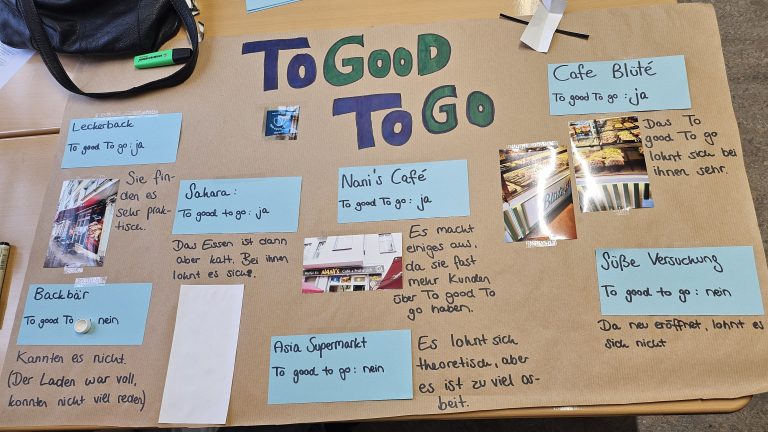 To GOOD
To Go
Leckerback
To good To go : ja
Sie fin-
den es
sehr prak-
tisch.
Sahara :
To good to go : ja
Das Essen ist dann
aber kalt. Bei ihnen
lohnt es sich.
Nani's Café
To good To go : ja
NANI'S
Es macht
einiges aus,
da sie fast
mehr Kunden
über To good To
go haben.
Cafe Blüté
To good To go : ja
Das To
good To go
lohnt sich bei
ihnen sehr.
Süße Versuchung
To good to go : nein
Da neu eröffnet, lohnt es
sich nicht
Backbär
To good To nein
Kannten es nicht.
(Der Laden war voll,
konnten nicht viel reden)
Asia Supermarkt
To good to go : nein
Es lohnt sich
theoretisch, aber
es ist zu viel ar-
beit.